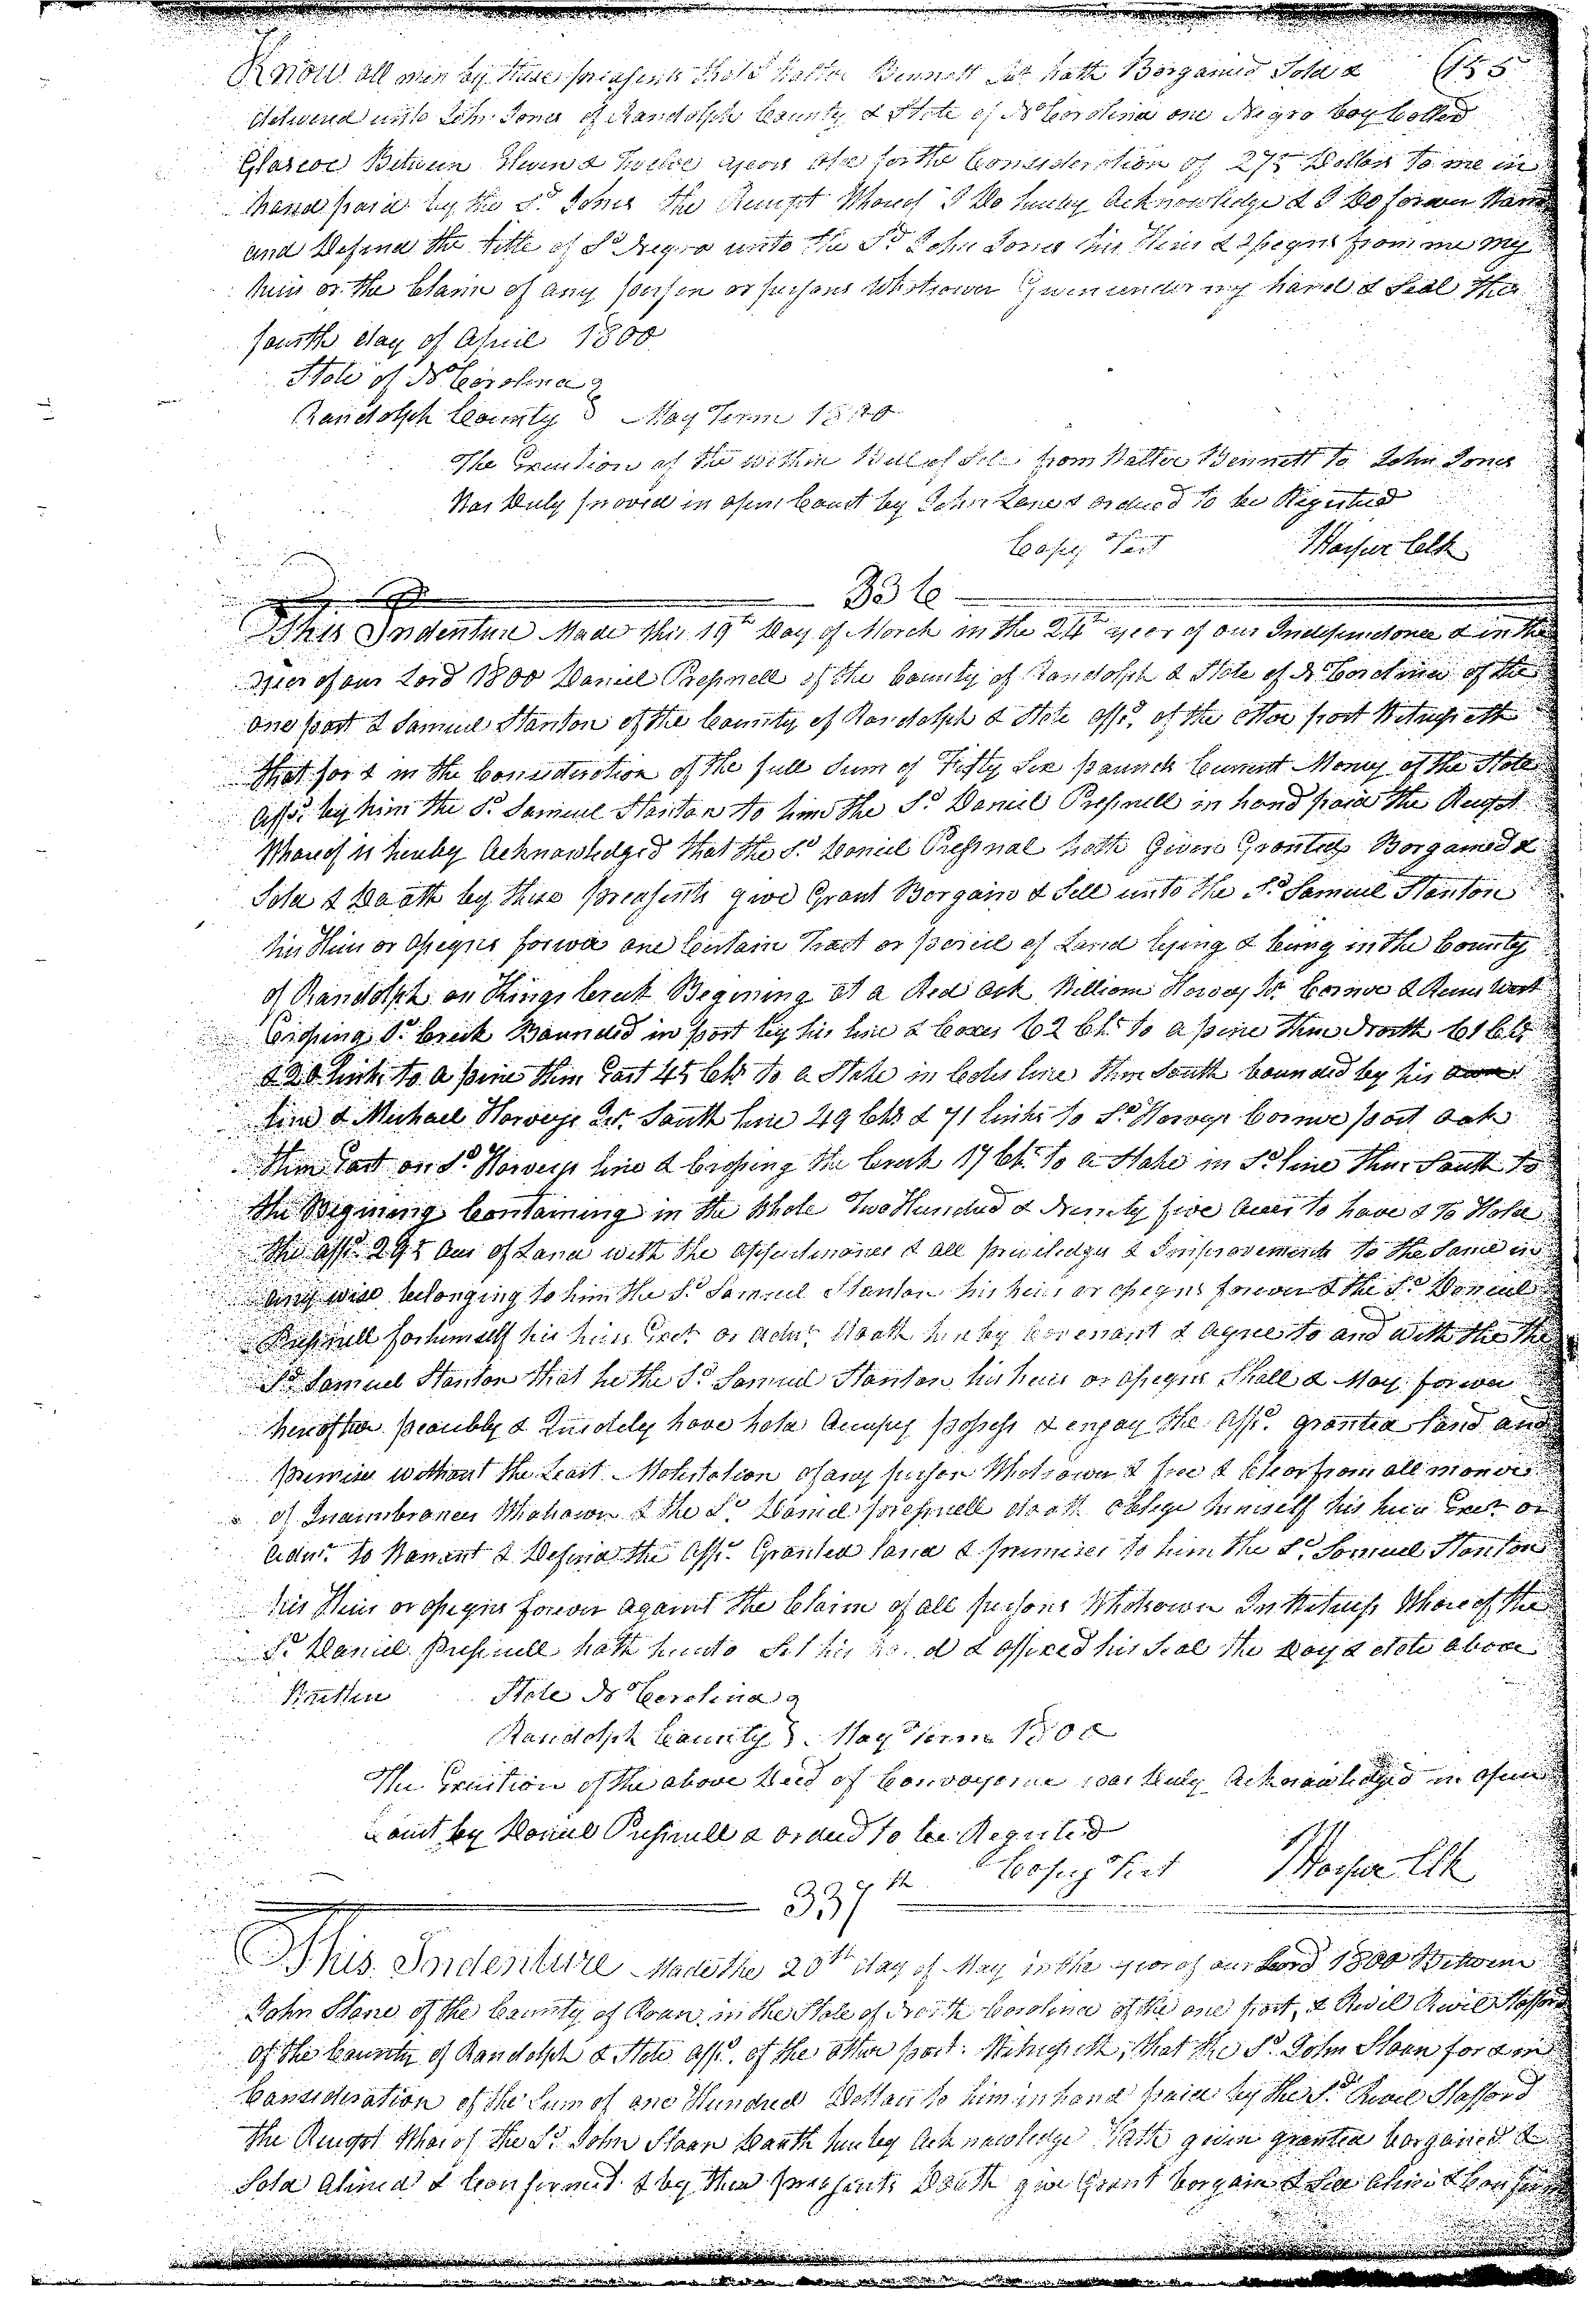 Know all men by these presents that I Walter Bennett Jur. hath Bargained Sold & (155
delivered unto John Jones of Randolph County & State of No Carolina one Negro boy Called
Glascoe Between Eleven & Twelve years old for the Consideration of 275 Dollars to me in
hand paid by the Sd. Jones the Receipt Whareof I Do hereby Acknowledge & I Do forever Warr
and Defend the title of Sd Negro unto the Sd John Jones his Heirs & Assigns from me my
heirs or the Claim of any person or persons Whatsoever Given under my hand & Seal this
fourth day of April 1800
State of No Carolina
Randolph County May Term 1800
The Execution of the within Bill of Sale from Walter Bennett to John Jones
Was Duly proved in open Court by John Lane & ordered to be Registred
Copy Test Harper Clk
336
This Indenture Made this 19th Day of March in the 24th year of our Independance & in the
year of our Lord 1800 Daniel Presnell of the County of Randolph & State of No Carolina of the
one part & Samuel Stanton of the County of Randolph & State affd. of the other part Witnesseth
that for & in the Consideration of the full Sum of Fifty Six pounds Current Money of the State
affd. by him the Sd. Samuel Stanton to him the Sd. Daniel Presnell in hand paid the Receipt
Whareof is hereby Acknowledged that the Sd. Daniel Presnal hath Given Granted Bargained &
Sold & Doath by these presents give Grant Bargain & Sell unto the Sd. Samuel Stanton
his Heirs or Assigns forever one Certain Tract or parcel of Land lying & being in the County
of Randolph on Kings Creek Begining at a Red oak William Harvey Sr. Corner & Runs West
Crossing Sd. Creek Bounded in part by his line & Coxes 62 Chs to a pine then North 61 Chs
& 20 links to a pine then East 45 Chs to a Stake in Coles line then South bounded by his own
line & Michael Harveys South line 29 Chs & 71 links to Sd Harveys Corner post oak
then East on Sd. Harveys line & Crossing the Creek 17 Chs to a Stake in Sd line then South to
the Begining Containing in the Whole Two Hundred & Ninety five acres to have & To Hold
the affd. 295 acres of Land with the appurtenances & all priviledges & Improvements to the Same in
any wise belonging to him the Sd. Samuel Stanton his heirs or assigns forever & the Sd Daniel
Presnell for himself his heirs Exrs or Admrs Doath hereby Covenant & agree to and with the the
Sd. Samuel Stanton that he the Sd Samuel Stanton his heirs or assigns Shall & May forever
hereafter peacibly & Quietely have hold Occupy possess & enjoy the affd. granted Land and
premises without the Least Molestation of any person Whatsoever & free & Clear from all maner
of Incumbrances Whatsoever & the Sd Daniel presnell doath oblige himself his heirs Exrs or
Admrs. to Warrant & Defend the affd. Granted Land & premises to him the Sd. Samuel Stanton
his Heirs or assigns forever against the Claim of all persons Whatsoever In Witness Whareof the
Sd. Daniel Presnell hath hereto Set his hand & affixed his Seal the Day & date above
Written State No Carolina
Randolph County May Term 1800
The Execution of the above Deed of Conveyance was Duly Acknowledged in open
Court by Daniel Presnell & ordered to be Registred
Copy Test Harper Clk
337th
This Indenture Made the 20th day of May in the year of our Lord 1800 Between
John Slone of the County of Roan, in the State of North Carolina of the one part, & Revil Revil Stafford
of the County of Randolph & State affd. of the other part: Witnesseth, that the Sd John Sloan for & in
Consideration of the Sum of one Hundred Dollars to him in hand paid by the Sd. Revel Stafford
the Receipt Whareof the Sd. John Sloan Doath hereby Acknowledge Hath given granted bargained &
Sold Aliened & Confirmed & by these presents Doath give Grant bargain & Sell Alien & Confirm